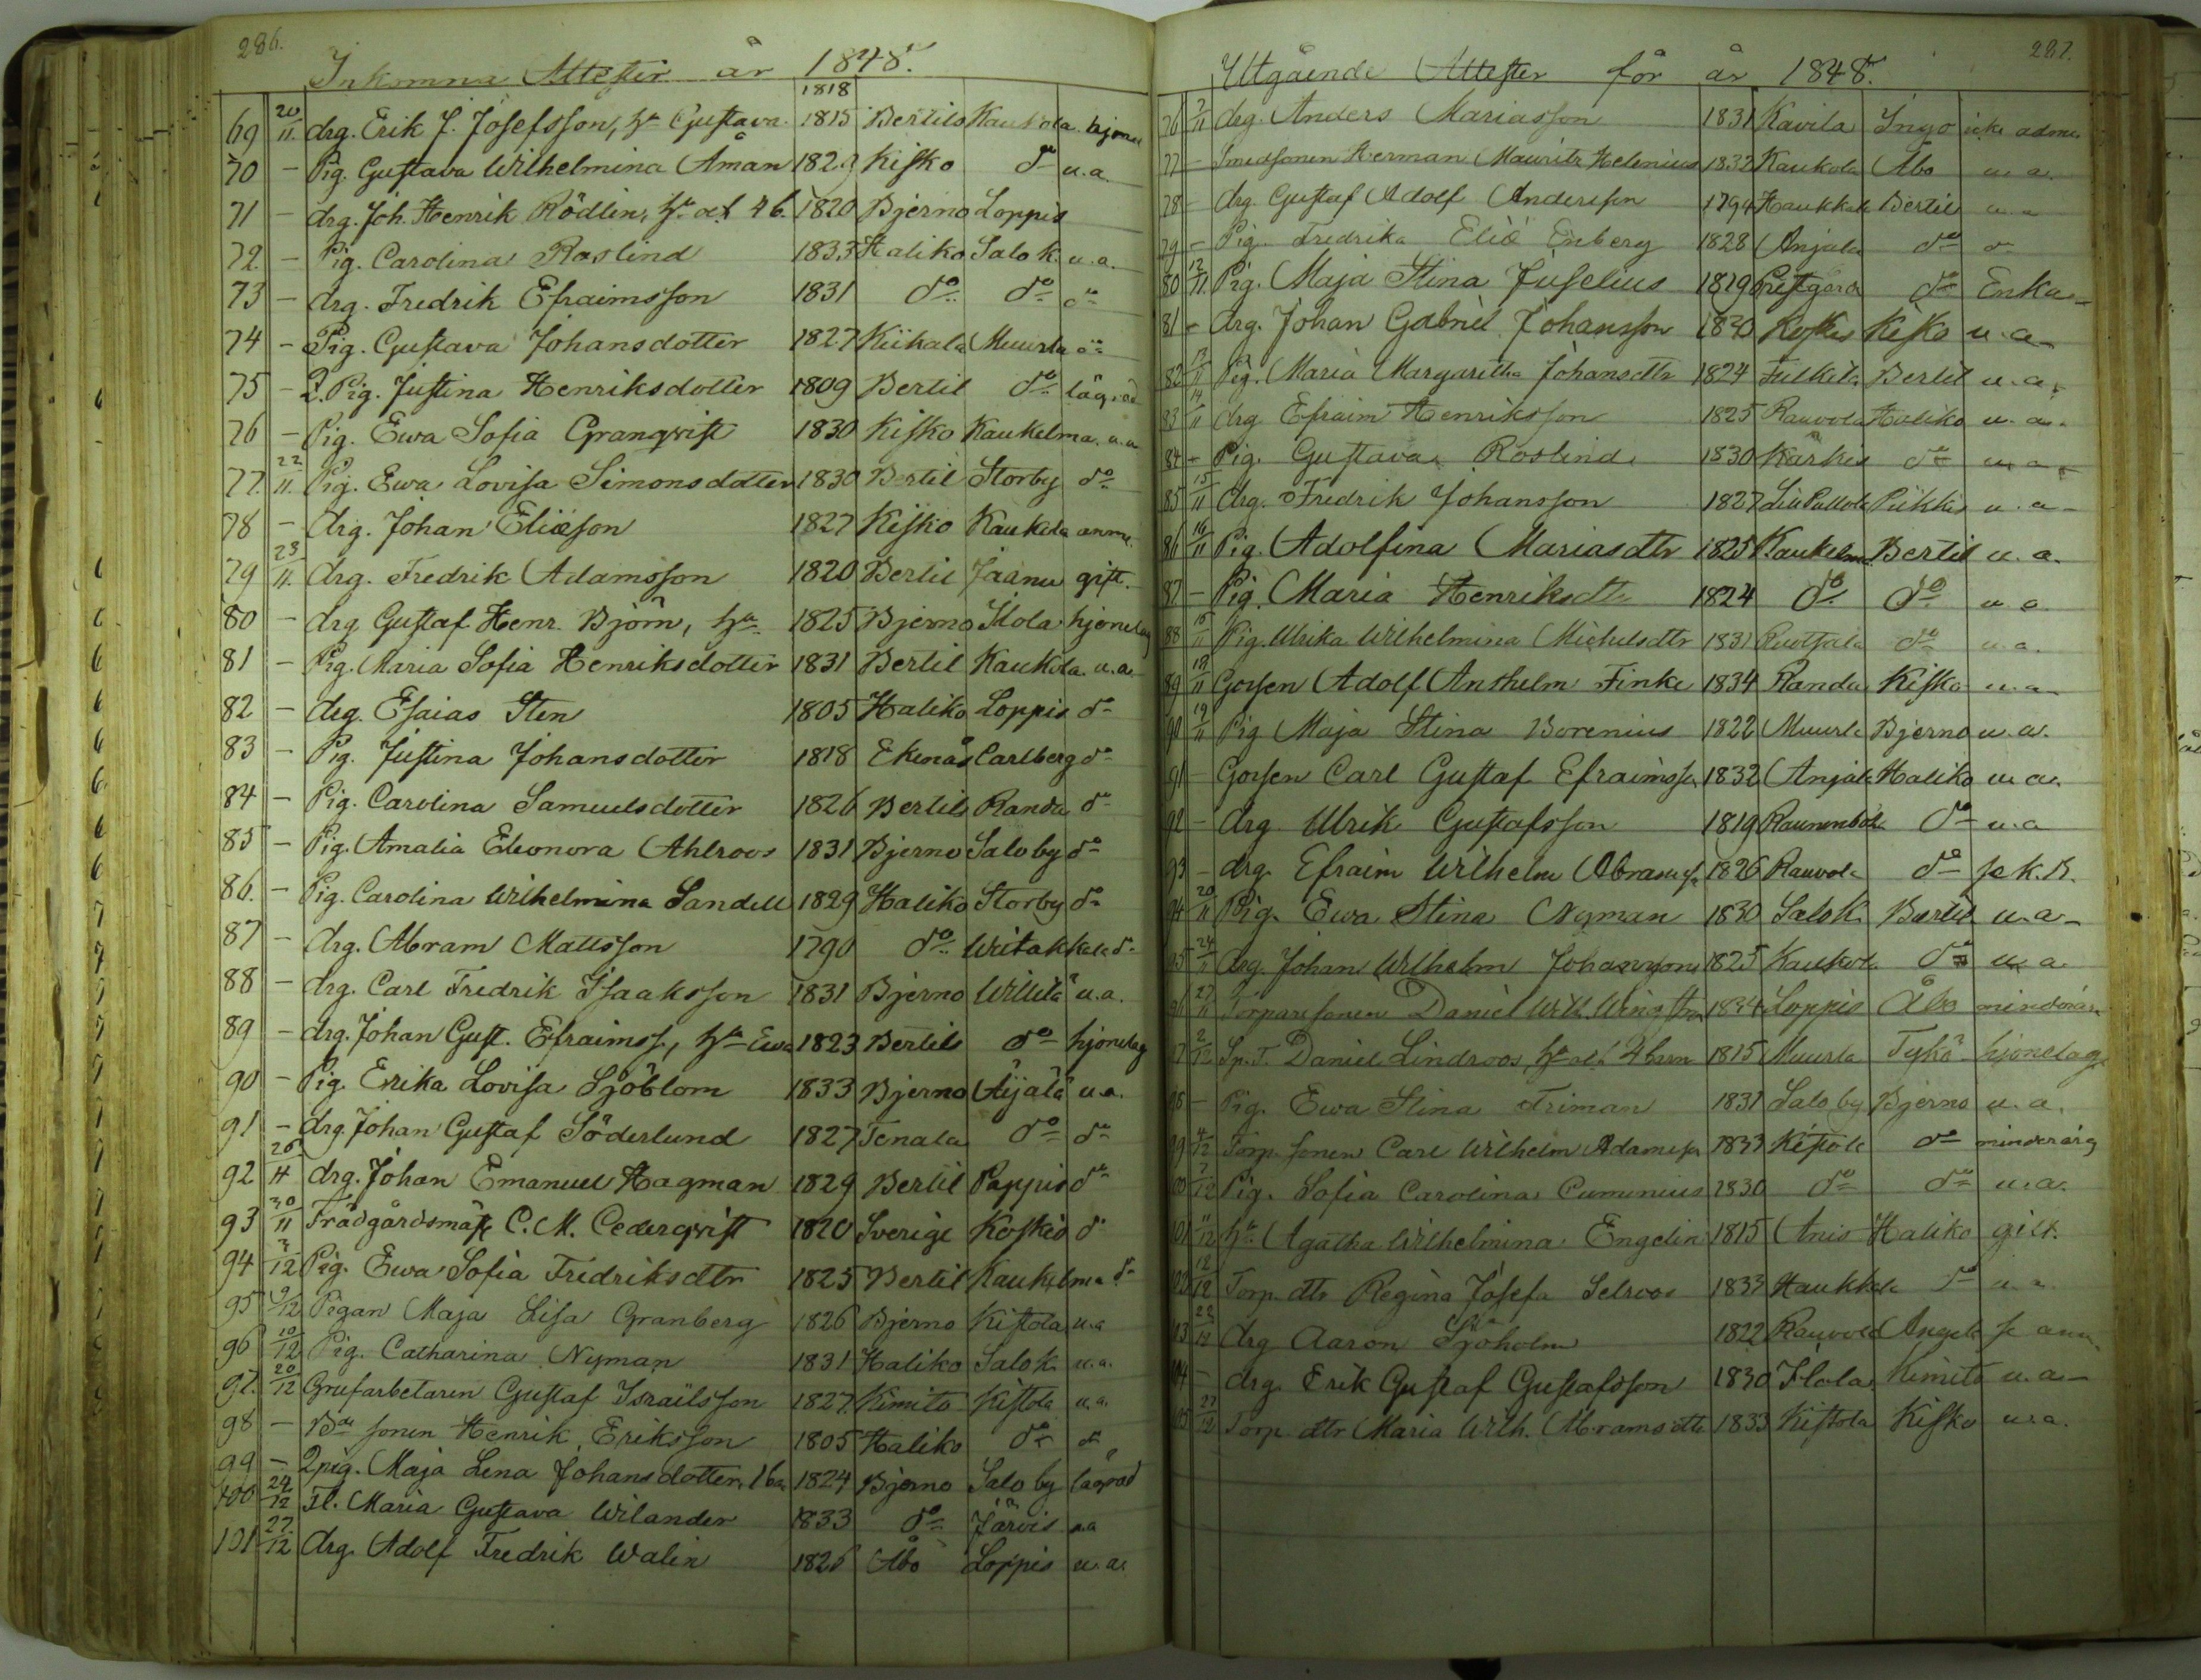 286.
Inkomna Attester år 1848.
1818
69 20/11 drg. Erik J. Josefsson, hu Gustava 1815 Bertils Kaukola hjonel
70 – Pig. Gustava Wilhelmina Åman 182 Kisko do u.a.
71 – drg. Joh. Henrik Rödlin, hu och 4 b. 1820 Bjerno Loppis
72. – Pig. Carolina Roslind 1833 Haliko Salo K. u.a.
73 – drg. Fredrik Efraimsson 1831 do do do
74 – Pig. Gustava Johansdotter 1827 Kiikala Muurla do
75 – Q. Pig. Justina Henriksdotter 1809 Bertil do lägrad
76 – Pig. Ewa Sofia Granqvist 1830 Kisko Kaukelma u.a
77. 22/11. Pig. Ewa Lovisa Simonsdotter 1830 Bertil Storby do
78 – drg. Johan Eliæson 1827 Kisko Kaukola anm.
79 23/11. drg. Fredrik Adamsson 1820 Bertil Jaanu gift.
80 – drg Gustaf Henr. Björn, hu 1825 Bjerno Ilola hjonelag
81 – Pig. Maria Sofia Henriksdotter 1831 Bertil Kaukola u.a
82 – drg. Esaias Sten 1805 Haliko Loppis do
83 – Pig. Justina Johansdotter 1818 Ekenäs Carlberg do
84 – Pig. Carolina Samuelsdotter 1826 Bertils Randa do
85 – Pig. Amalia Eleonora Ahlroos 1831 Bjerno Salo by do
86. – Pig. Carolina Wilhelmina Sandell 1829 Haliko Storby do
87 – drg. Abram Mattsson 1790 do Writakkala do
88 – drg. Carl Fredrik Isaaksson 1831 Bjerno Willilä u.a.
89 – drg. Johan Gust. Efraimss, hu Ewa 1823 Bertils do hjonelag
90 – Pig. Erika Lovisa Sjöblom 1833 Bjerno Äijälä u.a.
91 – drg. Johan Gustaf Söderlund 1827 Tenala do do
92 26/11 drg. Johan Emanuel Hagman 1829 Bertil Pappis do
93 30/11 Trädgårdsmäst C. M. Cederqvist 1820 Sverige Koskis do
94 3/12 Pig. Ewa Sofia Fredriksdtr 1825 Bertil Kaukelma do
95 9/12 Pigan Maja Lisa Granberg 1826 Bjerno Kistola u.a
96 10/12 Pig. Catharina Nyman 1831 Haliko Salo K. u.a.
97. 20/12 Grufarbetaren Gustaf Israilsson 1827 Kimito Kistola u.a.
98 – Bde sonen Henrik Eriksson 1805 Haliko do do
99 – Q pig. Maja Lena Johansdotter, 1 bn 1824 Bjerno Salo by lägrad
100 24/12 Fl. Maria Gustava Wilander 1833 do Järvis u.a
101 27/12 drg. Adolf Fredrik Walin 1826 Åbo Loppis u.a.
287.
Utgående Attester för år 1848.
76 7/11 drg. Anders Mariasson 1831 Kavila Ingo icke adm.
77 – Smedsonen Herman Mauritz Helenius 1832 Kaukola Åbo u.a.
78 – drg. Gustaf Adolf Andersson 1794 Haukkala Bertil u.a
79 – Pig. Fredrika Eliæ Enberg 1828 Anjala do do
80 12/11. Pig. Maja Stina Juselius 1819 Prestgård do Enka
81 – drg. Johan Gabriel Johansson 1830 Koskis Kisko u.a
82 13/11 Pig. Maria Margaretha Johansdtr 1824 Fulkila Bertil u.a.
83 14/11 drg Efraim Henriksson 1825 Rauvola Haliko u.a.
84 – Pig. Gustava Roslind 1830 Kärkis do u.a
85 15/11 drg. Fredrik Johansson 1827 Pükkis u.a
86 16/11 Pig. Adolfina Mariasdtr 1825 Kaukelma Bertil u.a.
87 – Pig. Maria Henriksdtr 1824 do do u.a
88 18/11 Pig. Ulrika Wilhelmina Michelsdtr 1831 Ruotsala do u.a.
89 18/11 Gossen Adolf Anshelm Finke 1834 Randa Kisko u.a
90 19/11 Pig Maja Stina Borenius 1822 Muurla Bjerno u.a.
91 – Gossen Carl Gustaf Efraimsson 1832 Anjala Haliko u.a.
92 – drg Ulrik Gustafsson 1819 do u.a
93 – drg. Efraim Wilhelm Abramss 1826 Rauvola do se K.B.
94 20/11 Pig. Ewa Stina Nyman 1830 Salo K. Bertil u.a
95 24/11 drg. Johan Wilhelm Johansson 1825 Kaukola do u.a
96 27/11 Torparesonen Daniel Wilh. 1834 Loppis Åbo minderår
97 2/12 Sp. T. Daniel Lindroos, hu och 2 barn 1815 Muurla Tykö hjonelag
98 – Pig. Ewa Stina Friman 1831 Salo by Bjerno u.a.
99 4/12 Torp. sonen Carl Wilhelm Adamsson 1833 Kistola do minderårg
100 7/12 Pig. Sofia Carolina Cumenius 1830 do do u.a.
101 11/12 hu Agatha Wilhelmina Engelin 1815 Anis Haliko gift.
102 12/12 Torp. dtr Regina Josefa Selroos 1833 Haukkala do u.a
103 22/12 drg Aaron Sjöholm 1822 Rauvola Angela se anm
104 – drg Erik Gustaf Gustafsson 1830 Ilola Kimito u.a
105 27/12 Torp. dtr Maria Wilh. Abramsdtr 1833 Kistola Kisko u.a.